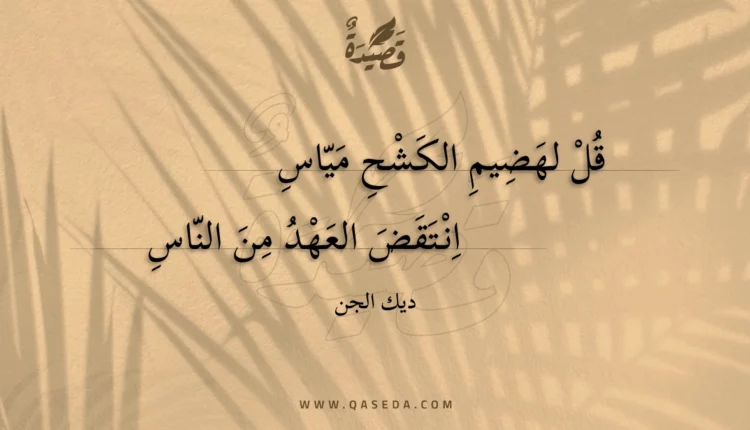 قَصِيْدَةٌ
قُلْ لهَضِيمِ الكَشْحِ مَيّاسِ
اِنْتَقَضَ العَهْدُ مِنَ النّاسِ
ديك الجن
WWW.QASEDA.COM